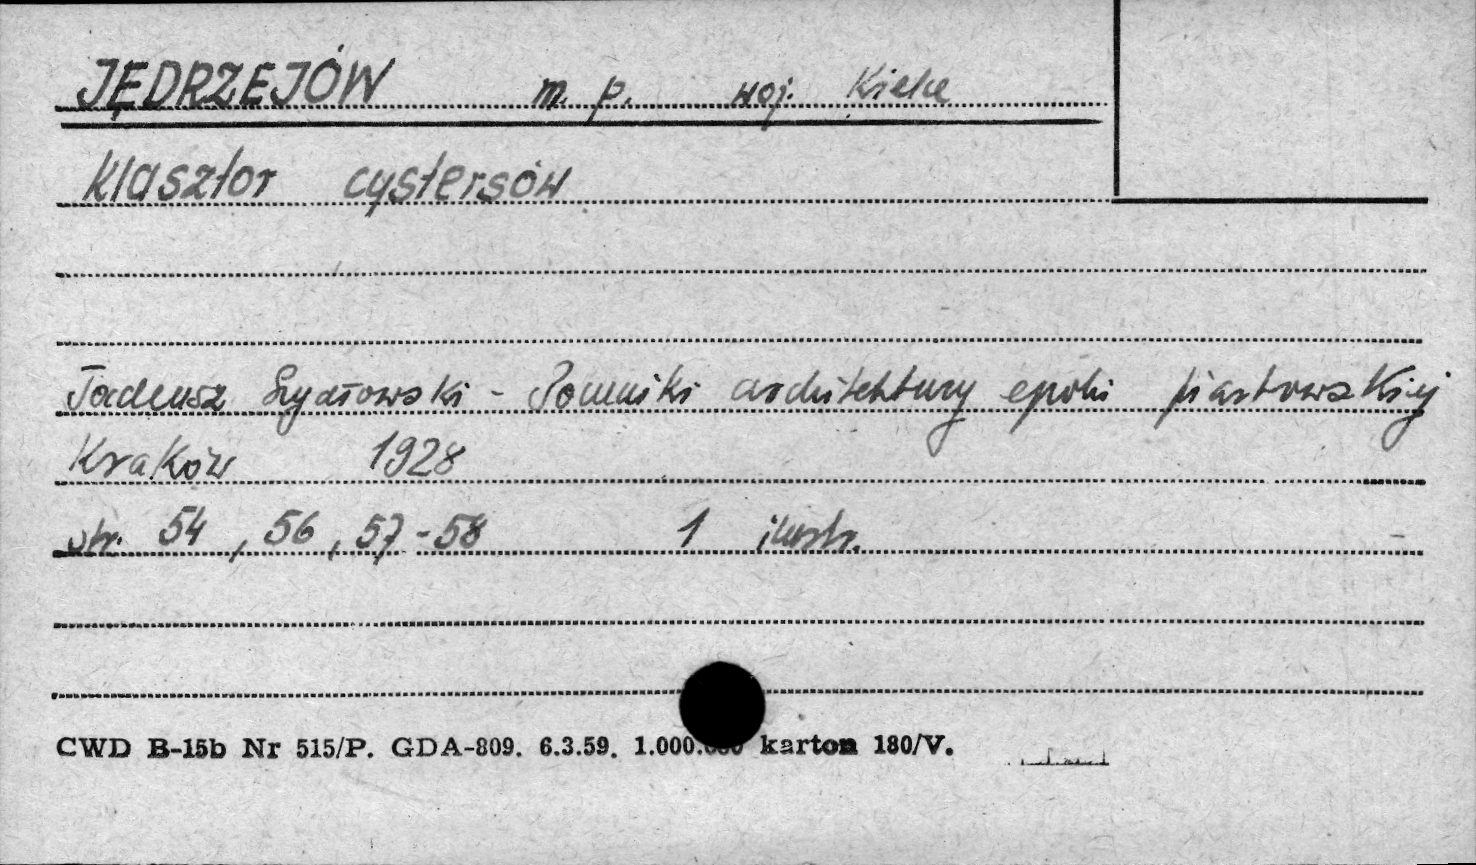 JĘDRZEJÓW m. p. woj. Kielce
Klasztor cystersów
Tadeusz Szydłowski - Pomniki architektury epoki piastowskiej
Kraków 1928
str. 54, 56, 57-58 1 ilustr.
CWD B-15b Nr 515/P. GDA-809. 6.3.59. 1.000.000 karton 180/V.